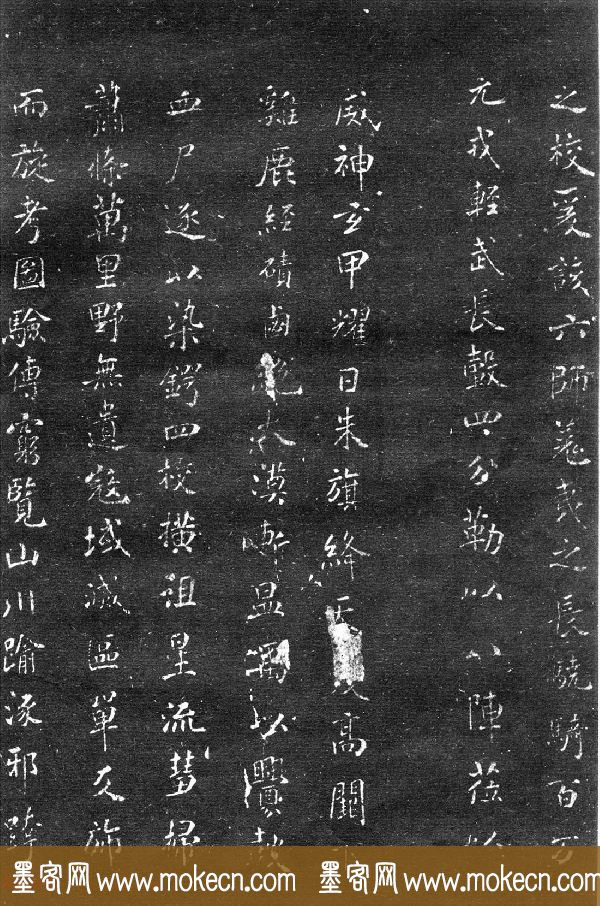 之校爰該六師羌夷之長驍騎百万
元戎輕武長轂四分勒以八陣莅以
威神玄甲耀日朱旗絳天高闕
雞鹿經磧鹵絕大漠斬温禺以釁鼓
血尸逐以染鍔四校横徂星流彗掃
蕭條萬里野無遺寇域滅區單反旆
而旋考圖驗傳窮覽山川踰涿邪跨
墨客网 www.mokecn.com 墨客网 www.mokecn.com